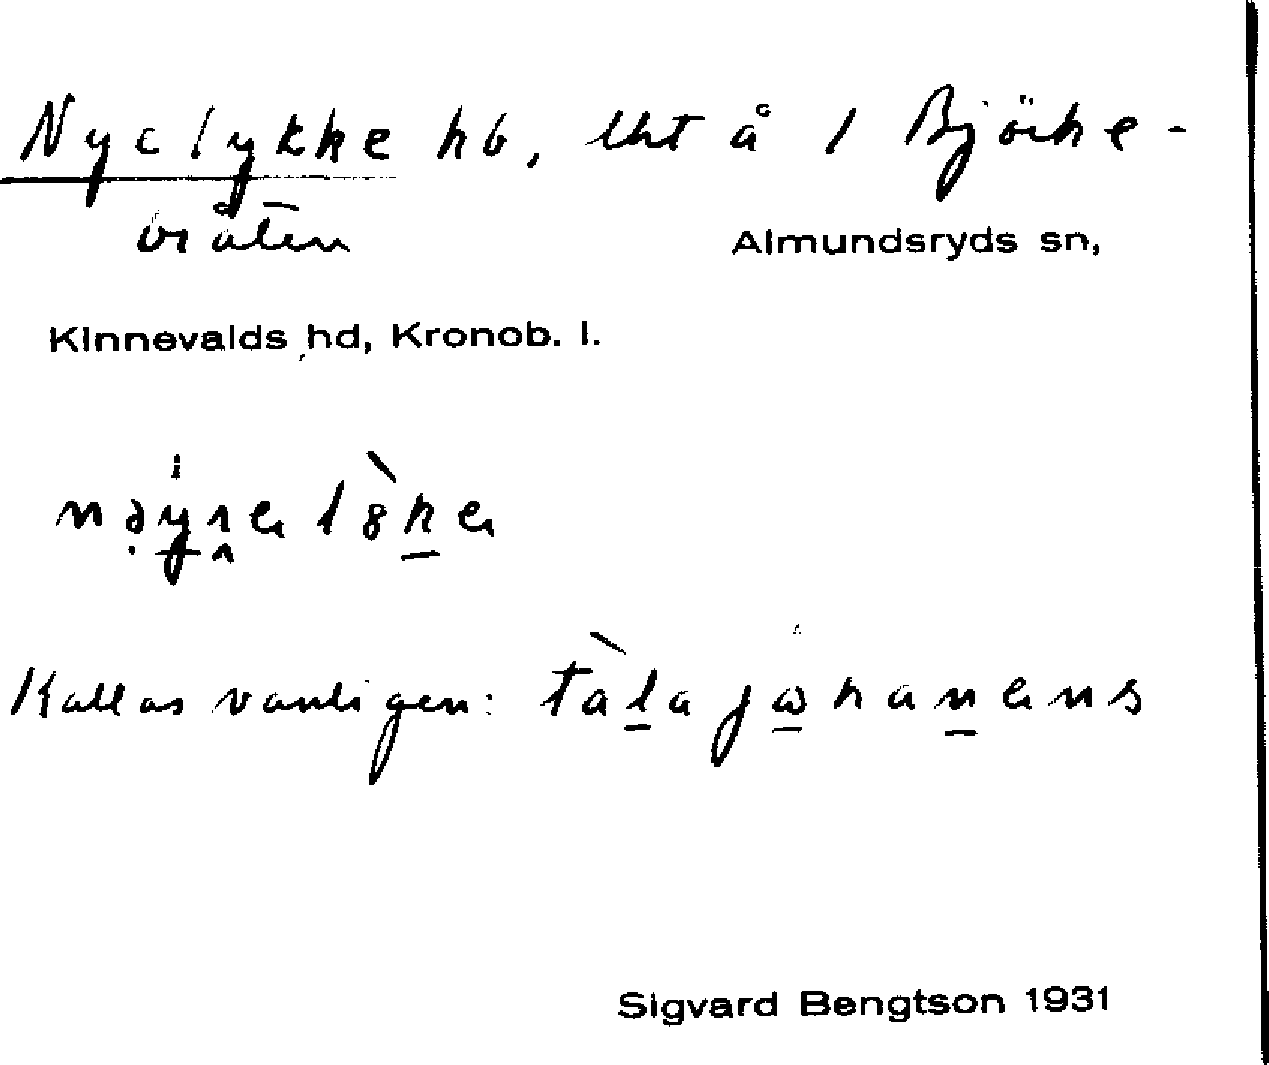 Nyelykke hb, lht å 1 Björke-
bråten
Almundsryds sn,
Kinnevalds hd, Kronob. l.
Kallas vanligen: tàla johanans
Sigvard Bengtson 1931